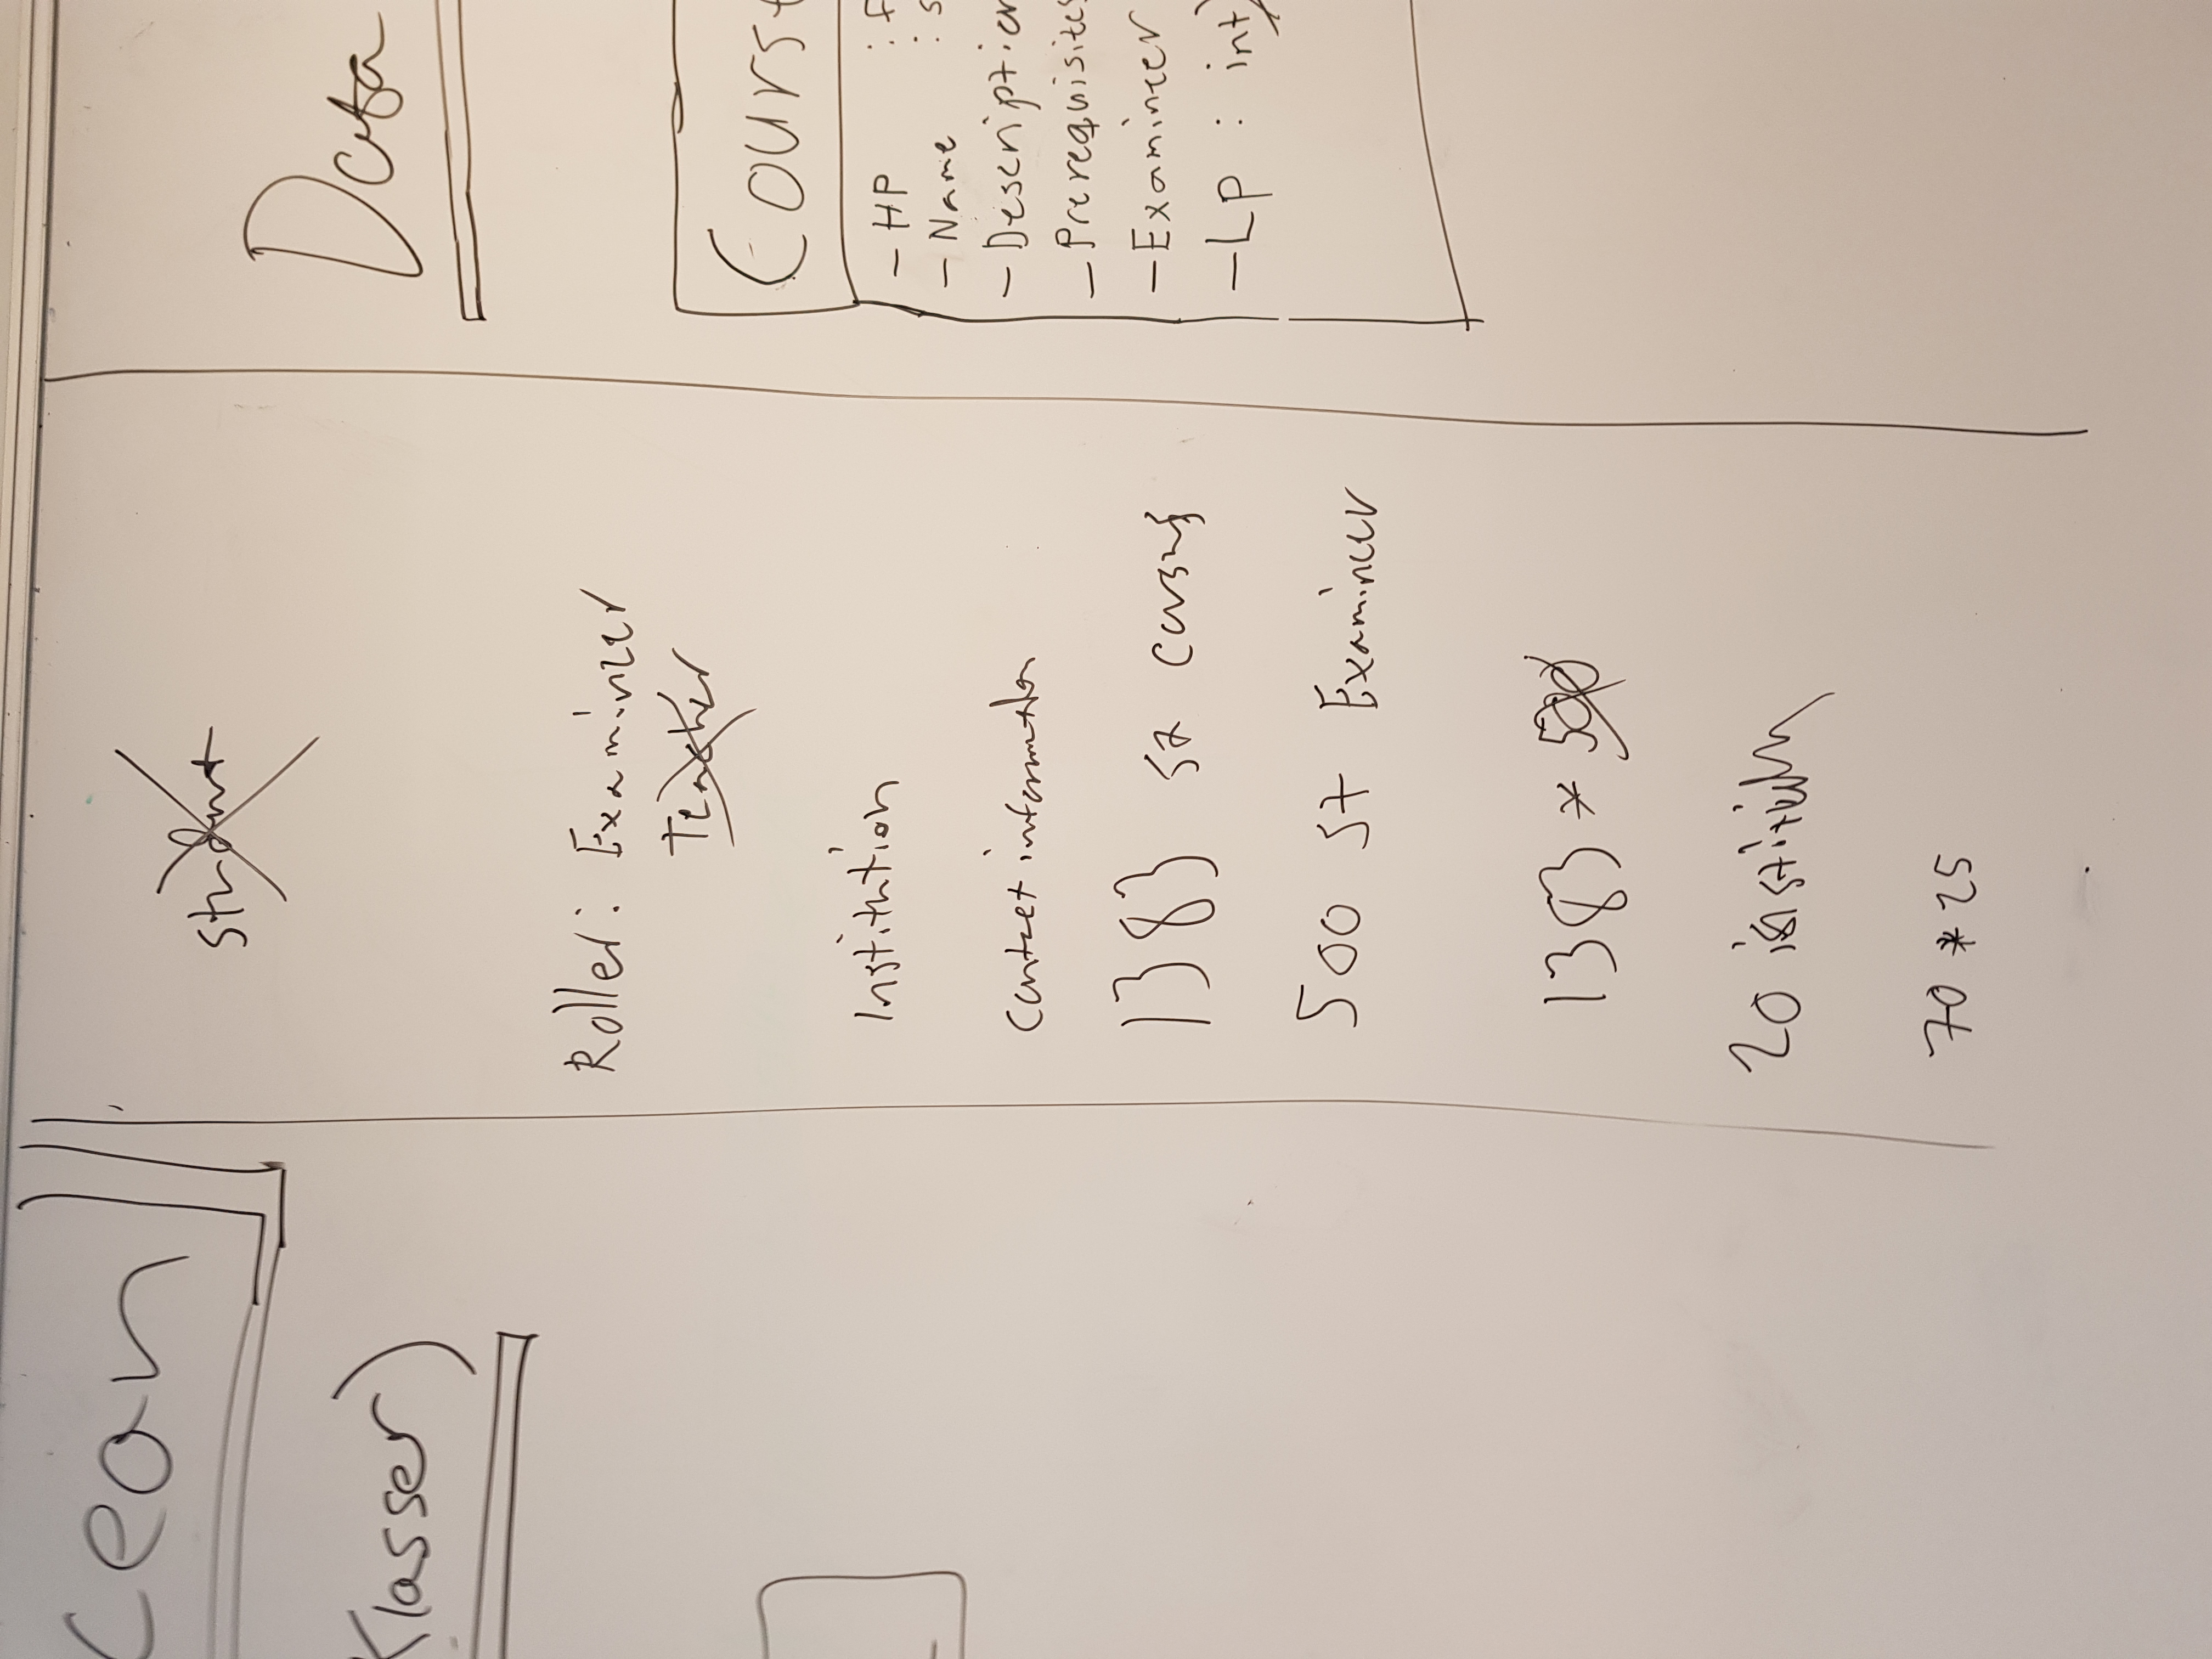 cean
Klasser)
student
Roller: Examineer
Teacher
Institution
Contact information
1383 st
500 st Examineer
1383 * 500
20
70 * 25
Data
Course
- HP : f
- Name : s
- Description
- Prerequisites
- Examineer
- Lp : int)